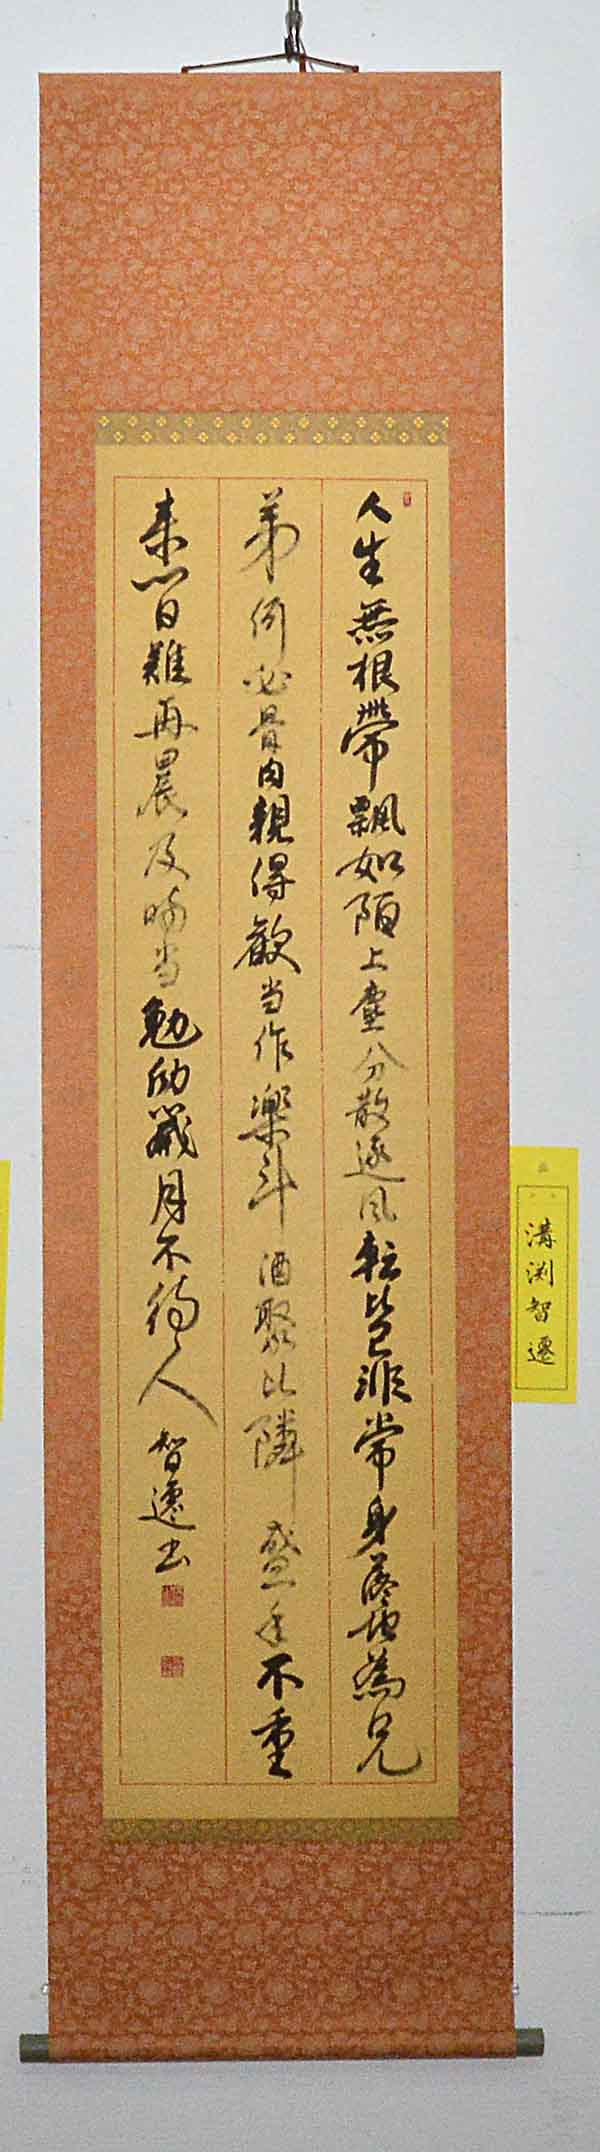 人生無根帶飄如陌上塵分散逐風転此已非常身落地為兄
弟何必骨肉親得歓当作楽斗酒聚比隣盛年不重
来一日難再晨及時当勉励歳月不待人 智遷書
溝渕智遷